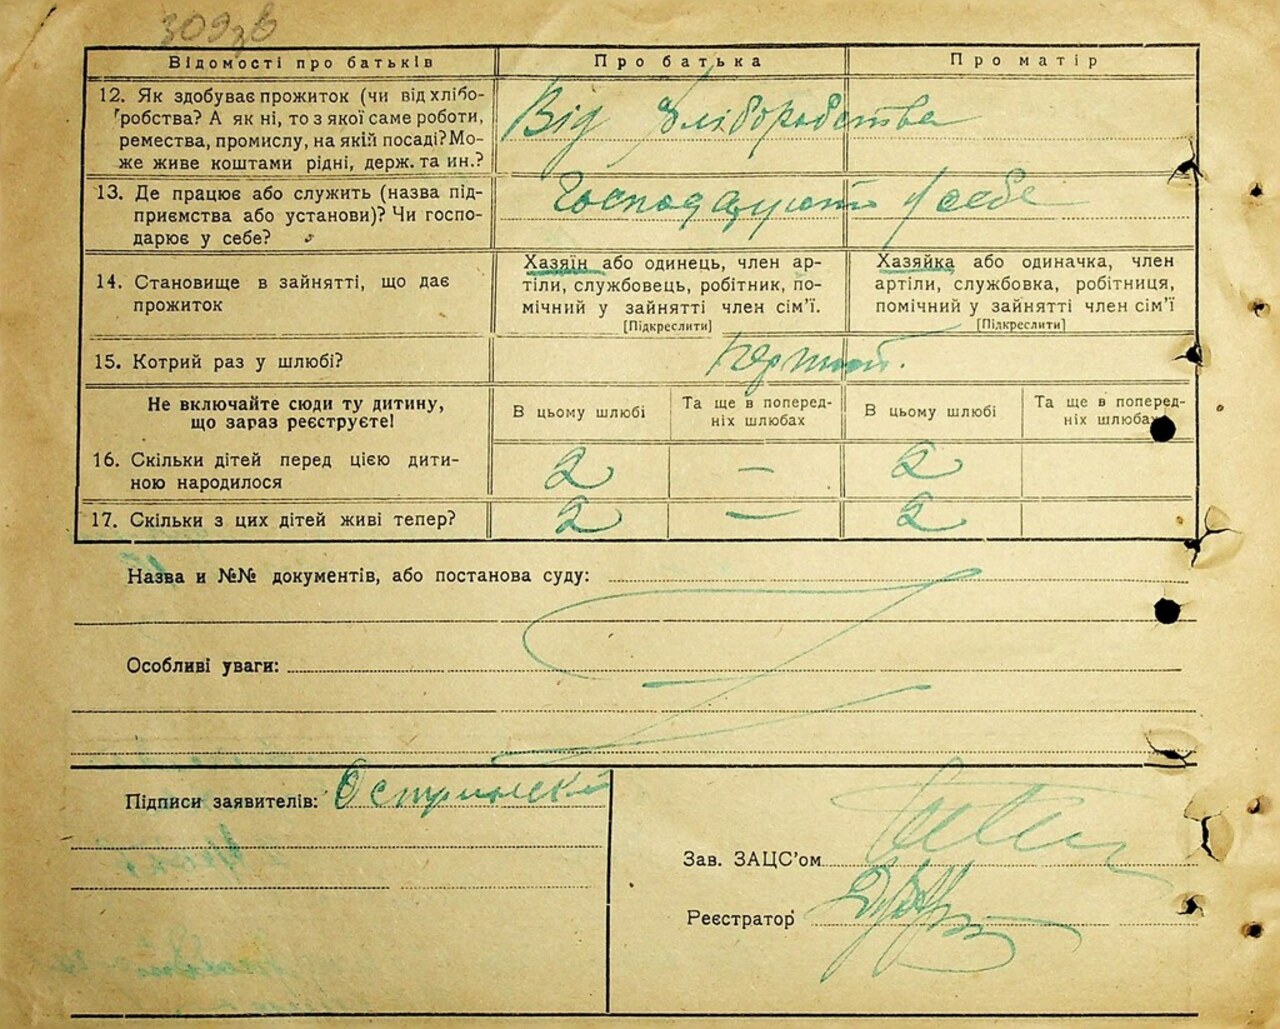 309зв
Відомості про батьків Про батька Про матір
12. Як здобуває прожиток (чи від хлібо-
робства? А як ні, то з якої саме роботи,
ремества, промислу, на якій посаді? Мо-
же живе коштами рідні, держ. та ин.?
Від хліборобства
13. Де працює або служить (назва під-
приємства або установи)? Чи госпо-
дарює у себе?
Господарюють у себе
14. Становище в зайнятті, що дає
прожиток
Хазяїн або одинець, член ар-
тіли, службовець, робітник, по-
мічний у зайнятті член сім'ї.
[Підкреслити]
Хазяйка або одиначка, член
артіли, службовка, робітниця,
помічний у зайнятті член сім'ї
[Підкреслити]
15. Котрий раз у шлюбі?
Не включайте сюди ту дитину,
що зараз реєструєте!
В цьому шлюбі
Та ще в поперед-
ніх шлюбах
В цьому шлюбі
Та ще в поперед-
ніх шлюбах
16. Скільки дітей перед цією дити-
ною народилося
2 — 2
17. Скільки з цих дітей живі тепер? 2 — 2
Назва и №№ документів, або постанова суду:
Особливі уваги:
Підписи заявителів:
Зав. ЗАЦС'ом
Реєстратор